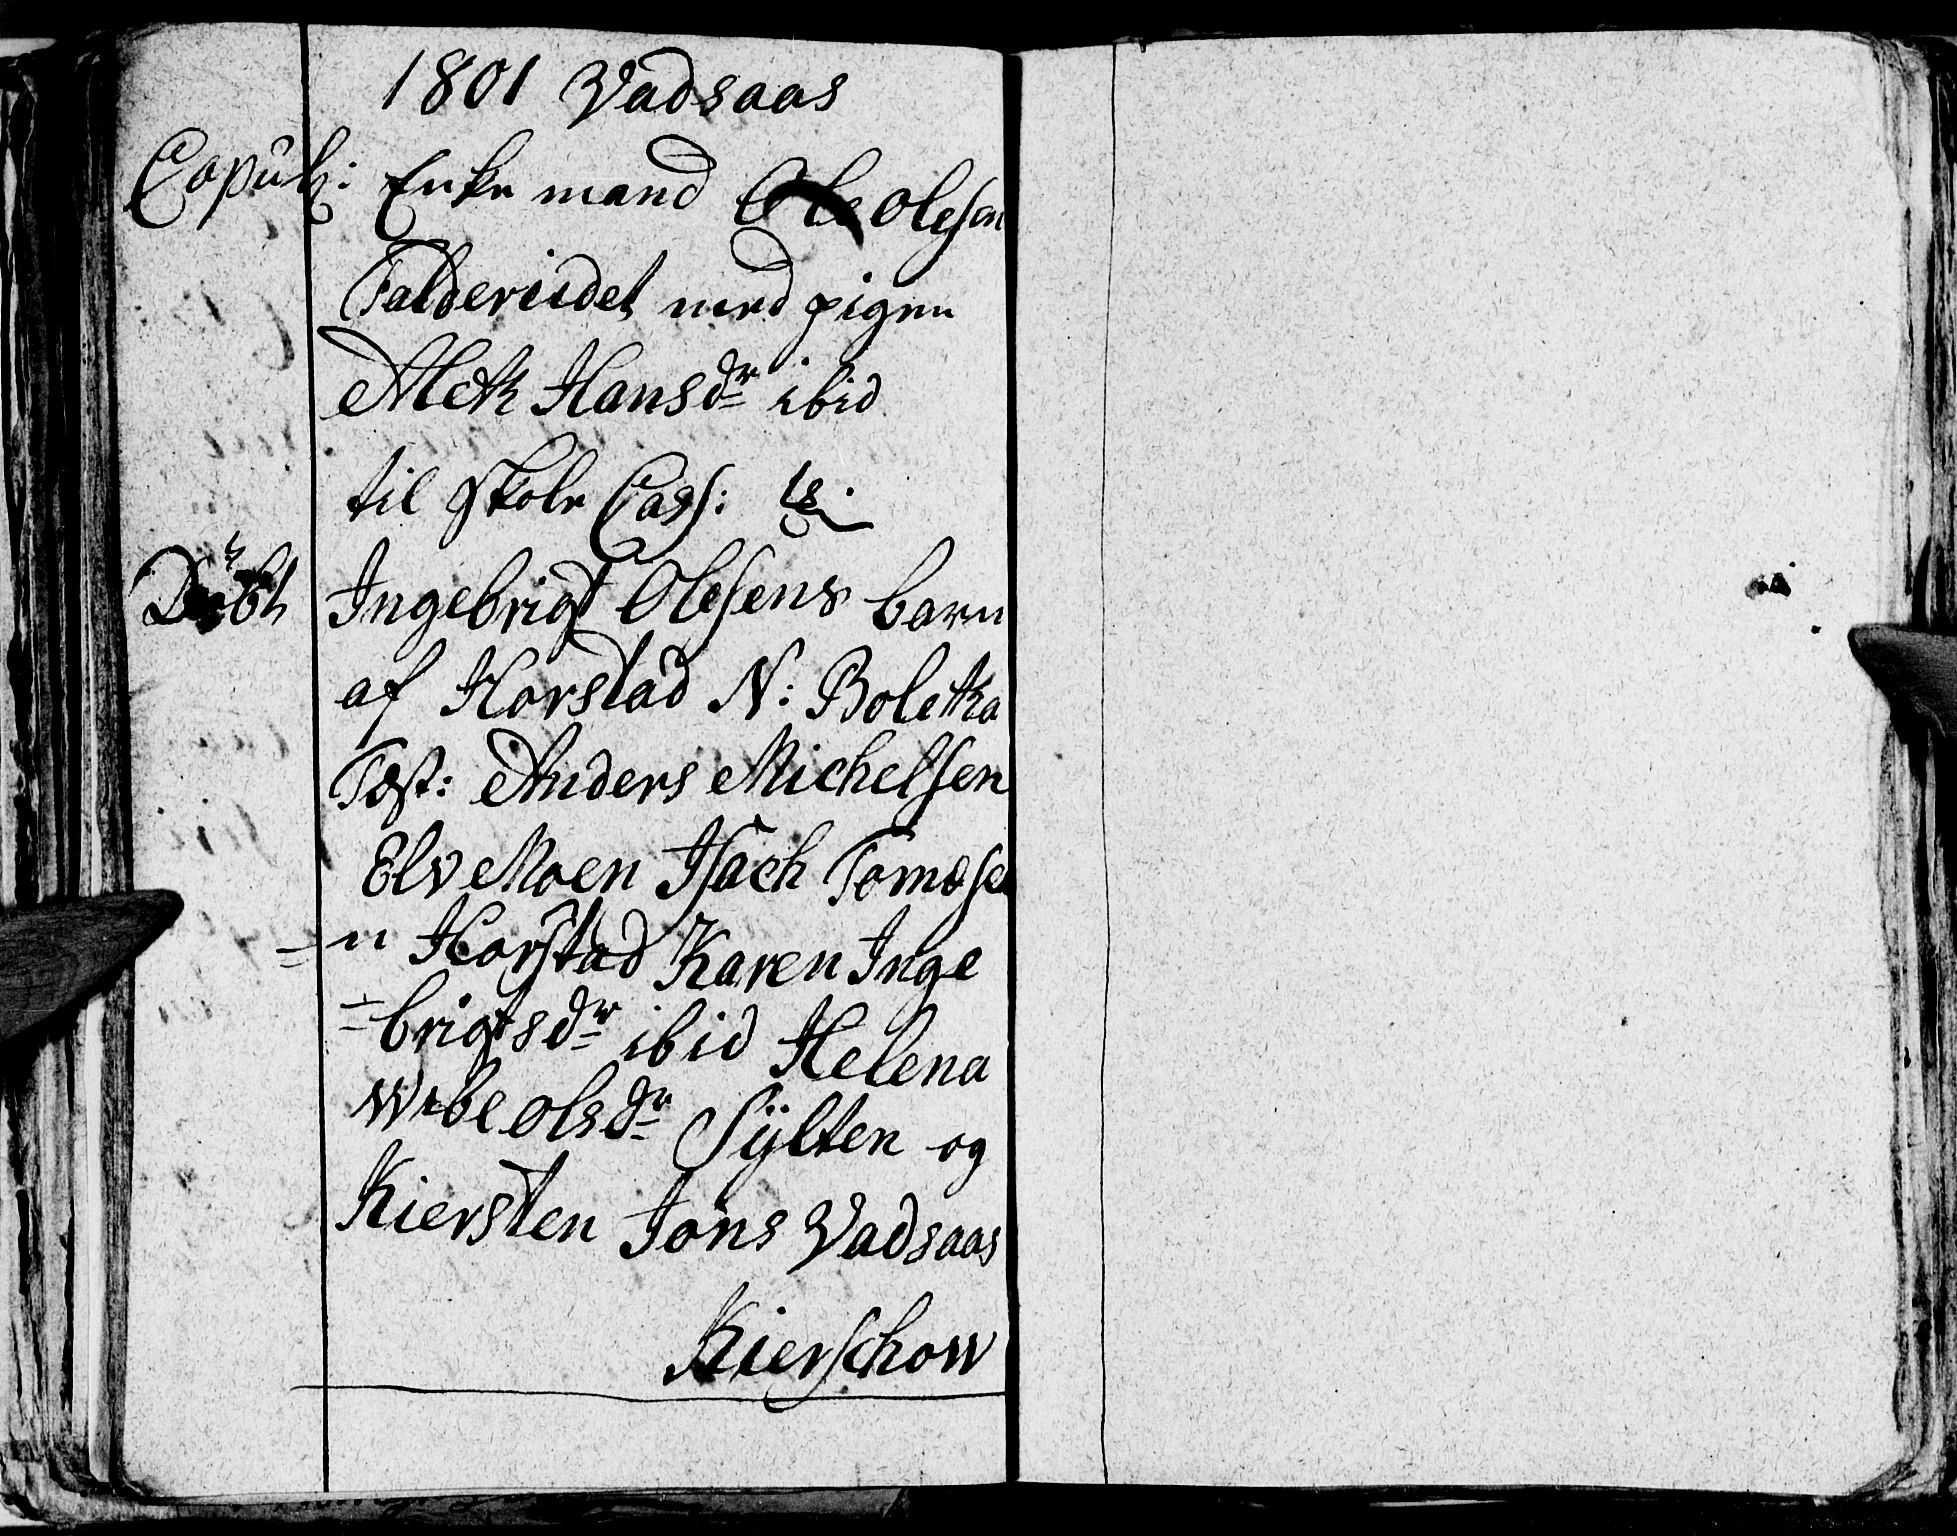 1801 Vadsaas
Copul: Enke mand Ole Olesen
Falderiidet med pigen
Meth Hansdr ibid
til skole Cass:
Döbt Ingebrigt Olesens barn
af Horstad N: Boletha
Test: Anders Michelsen
Elv Moen Isach Tomæse
= n Horstad Karen Inge
= brigtsdr ibid Helena
Wibe Olsdr Sÿlten og
Kiersten Jons Vadsaas
Kierschow